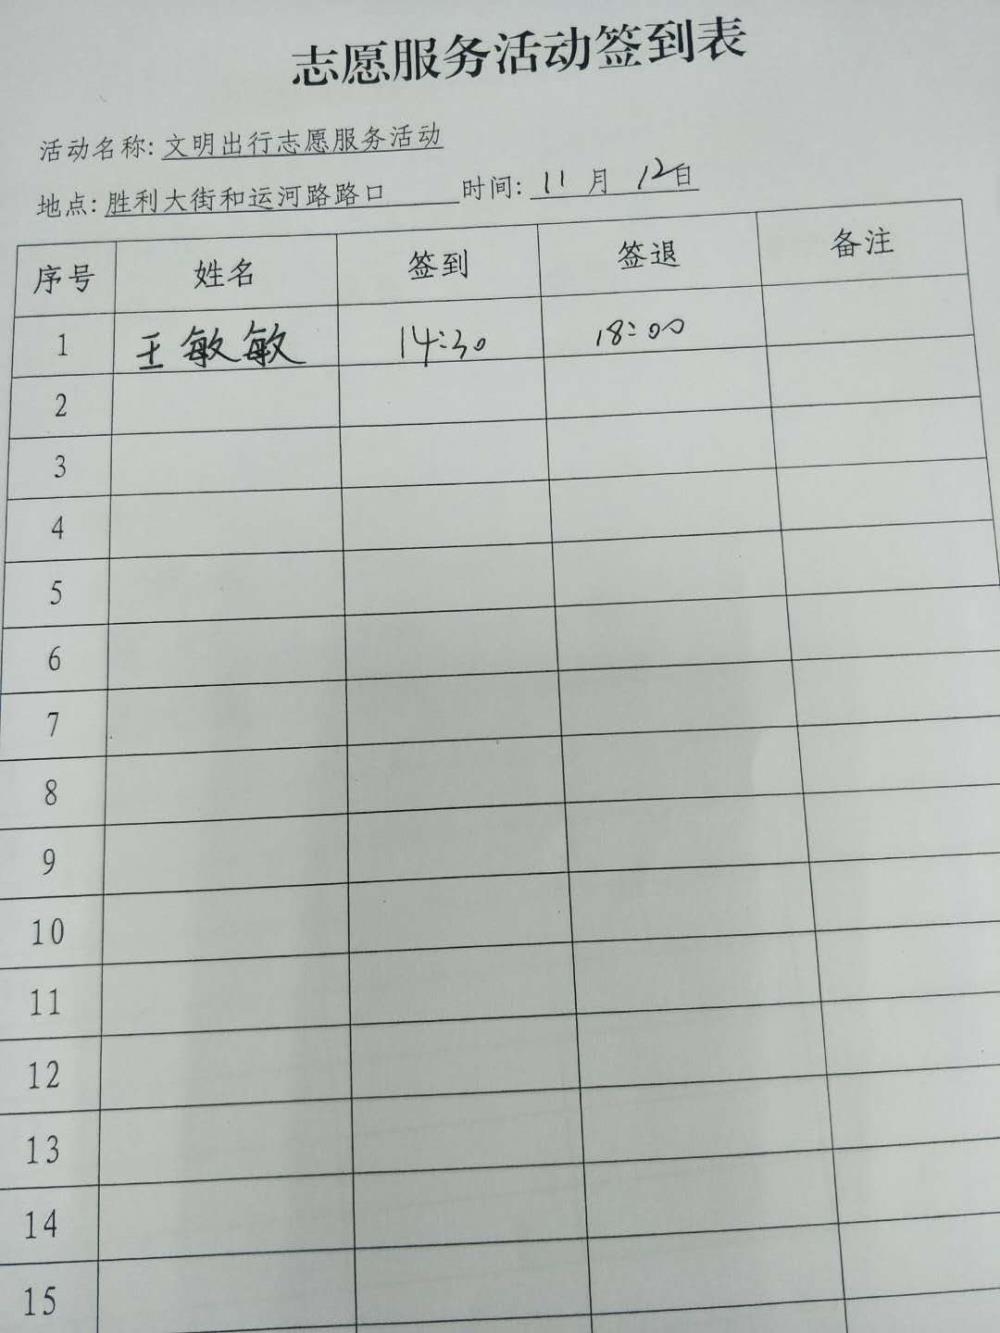 志愿服务活动签到表
活动名称: 文明出行志愿服务活动
地点: 胜利大街和运河路路口 时间: 11 月 12日
序号 姓名 签到 签退 备注
1 王敏敏 14:30 18:00
2
3
4
5
6
7
8
9
10
11
12
13
14
15